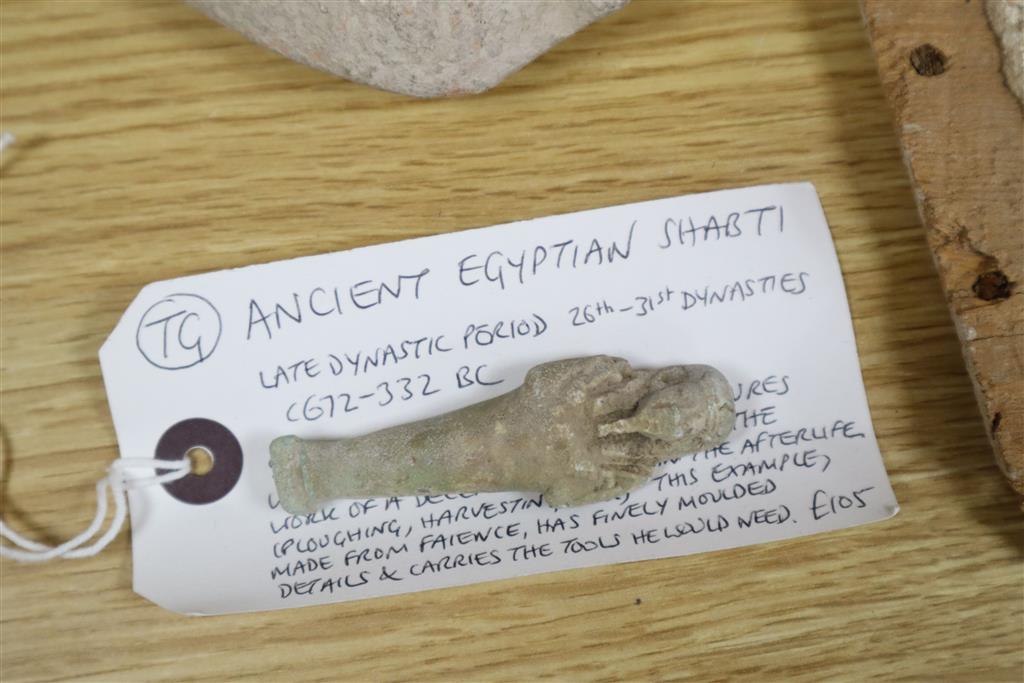 TG
ANCIENT EGYPTIAN SHABTI
LATE DYNASTIC PERIOD 26th-31st DYNASTIES
C672-332 BC
URES
THE
IN THE AFTERLIFE
WORK OF A DECE
(PLOUGHING, HARVESTIN THIS EXAMPLE,
MADE FROM FAIENCE, HAS FINELY MOULDED
DETAILS & CARRIES THE TOOLS HE WOULD NEED. £105